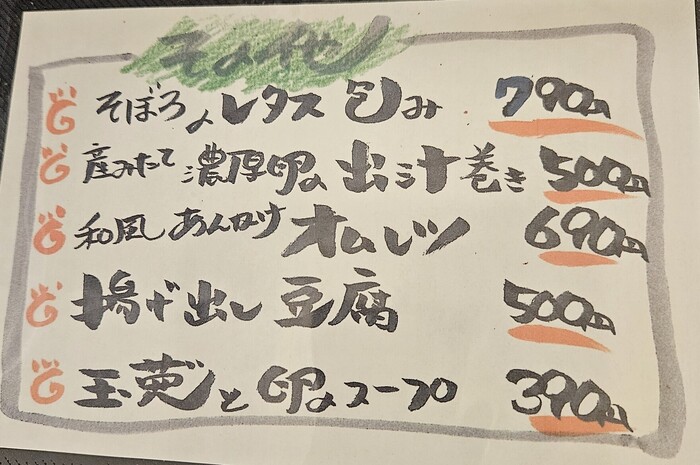 その他
そぼろのレタス包み 790円
産みたて濃厚卵の出汁巻き 500円
和風あんかけオムレツ 690円
揚げ出し豆腐 500円
玉葱と卵のスープ 390円